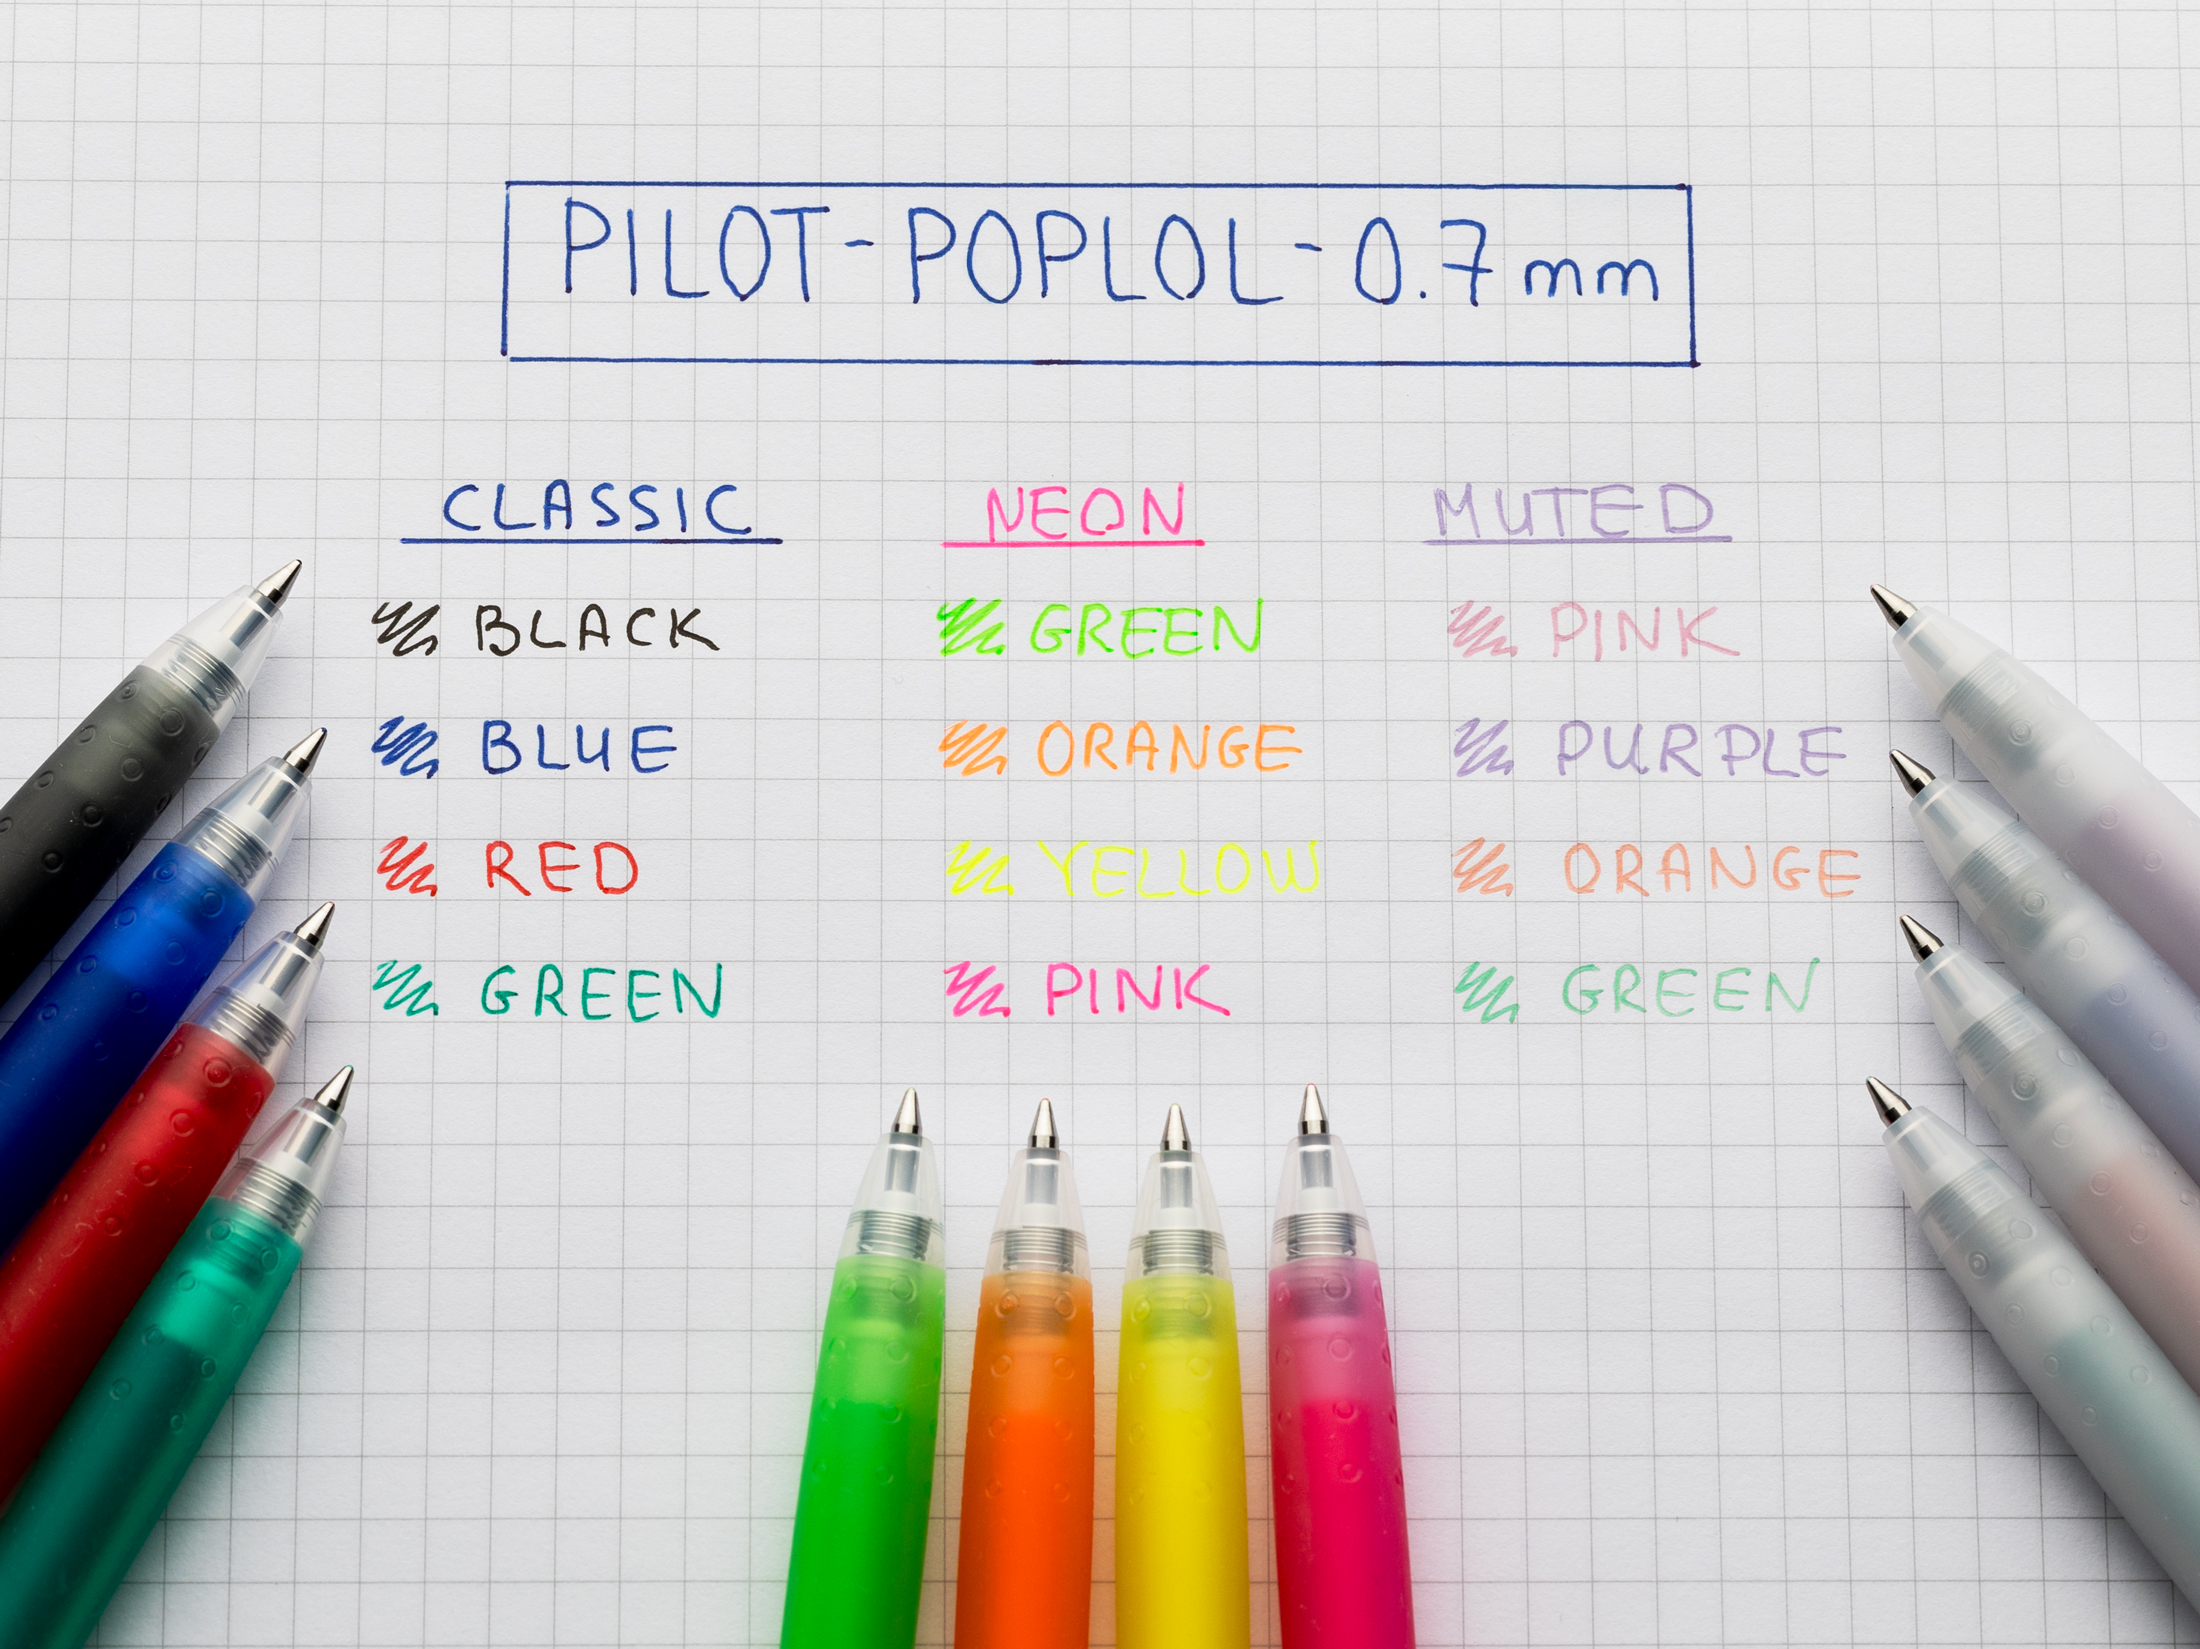 PILOT-POPLOL-0.7mm
CLASSIC NEON MUTED
BLACK GREEN PINK
BLUE ORANGE PURPLE
RED YELLOW ORANGE
GREEN PINK GREEN